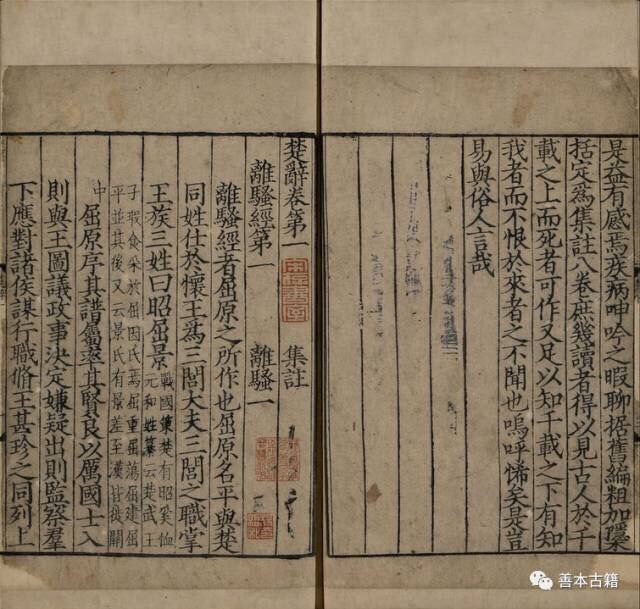 是益有感焉疾病呻吟之暇聊据舊編粗加檃
括定爲集註八卷庶幾讀者得以見古人於千
載之上而死者可作又足以知千載之下有知
我者而不恨於來者之不聞也嗚呼悕矣是豈
易與俗人言哉
楚辭卷第一 集註
離騷經第一 離騷一
離騷經者屈原之所作也屈原名平與楚
同姓仕於懷王爲三閭大夫三閭之職掌
王族三姓曰昭屈景
戰國策楚有昭奚恤
元和姓纂云楚武王
子瑕食采於屈因氏焉屈重屈蕩屈建屈
平並其後又云景氏有景差至漢皆徙關
中 屈原序其譜屬率其賢良以厲國士入
則與王圖議政事決定嫌疑出則監察羣
下應對諸侯謀行職脩王甚珍之同列上
善本古籍